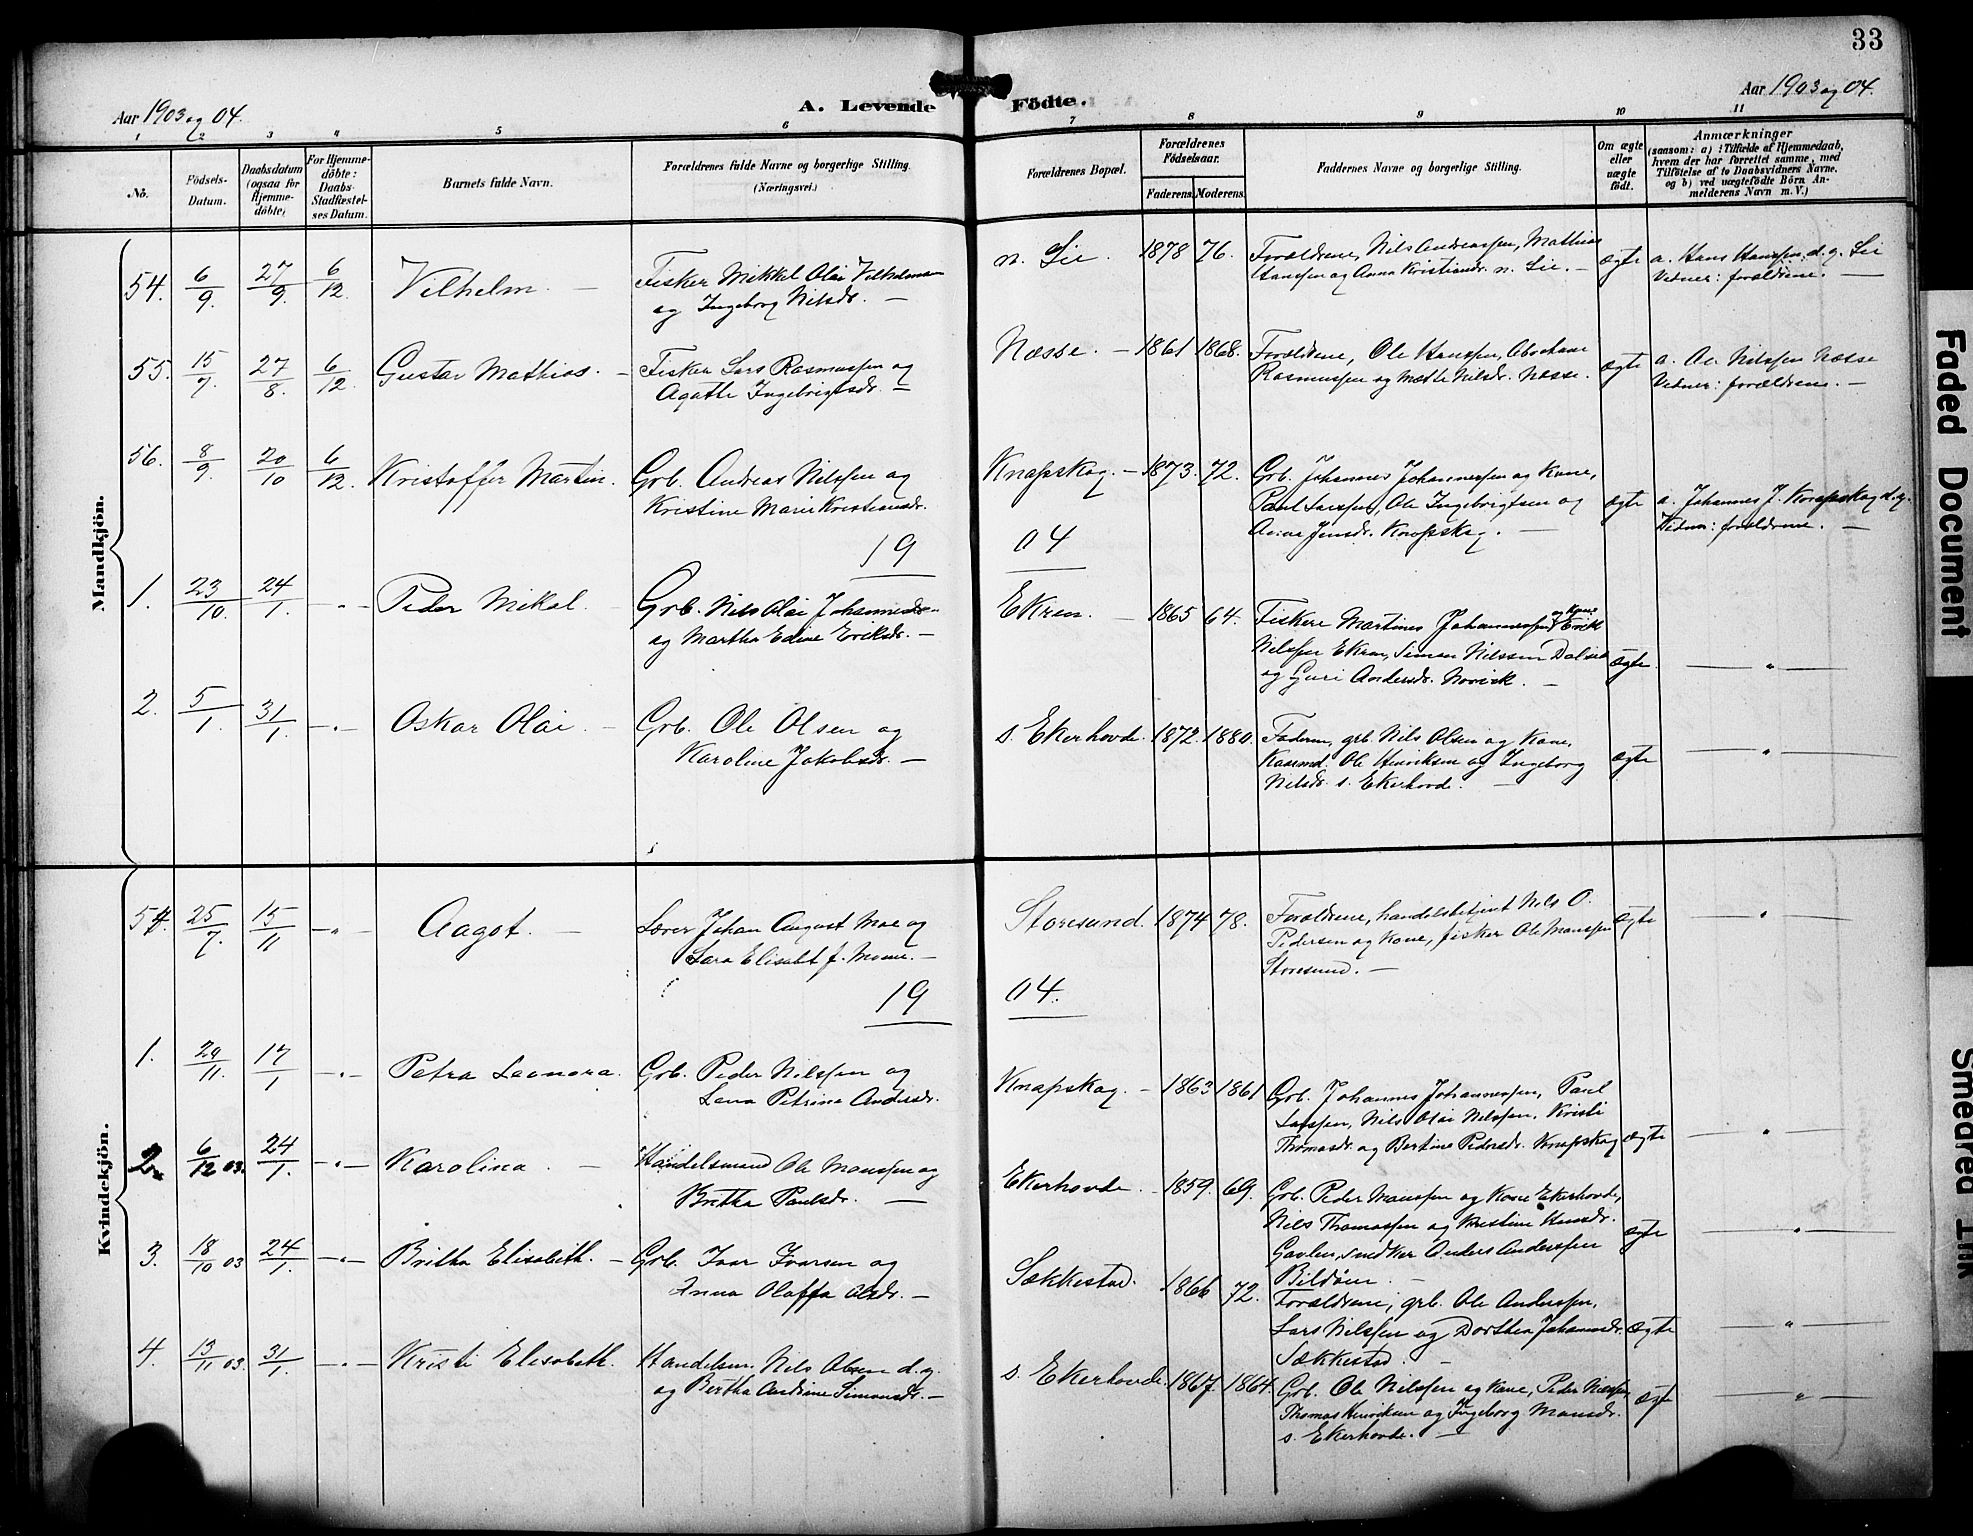 33
Aar 1903 og 04.
A. Levende Födte.
Aar 1903 og 04.
1 2 3 4 5 6 7 8 9 10 11
No.
Födsels-Datum.
Daabsdatum (ogsaa for Hjemme-döbte)
For Hjemme-döbte: Daabs-Stadfæstel-ses Datum.
Barnets fulde Navn.
Forældrenes fulde Navne og borgerlige Stilling.
(Næringsvei.)
Forældrenes Bopæl.
Forældrenes Födselsaar.
Faderens. Moderens.
Faddernes Navne og borgerlige Stilling.
Om ægte eller uægte födt.
Anmærkninger
(saasom: a) i Tilfælde af Hjemmedaab,
hvem der har forrettet samme, med
Tilföielse af to Daabsvidners Navne,
og b) ved uægtefödte Börn An-
melderens Navn m. V.)
Mandkjön.
54. 6/9. 27/9. 6/12. Vilhelm. — Fisker Mikkel Olai Vilhelmsen
og Ingeborg Nilsdr. —
n. Lie. 1878 76. Forældrene, Nils Andreassen, Mathias
Hanssen og Anna Kristiansdr. n. Lie. —
ægte a. Hans Hanssen d.y. Lie
Vidner: forældrene. —
55. 15/7. 27/8. 6/12. Gustav Mathias. — Fisker Lars Rasmussen og
Agathe Ingebrigtsdr. —
Næsse. — 1861 1868. Forældrene, Ole Hanssen, Abraham
Rasmussen og Mætte Nilsdr. Næsse.
ægte a. Nilssen Næsse
Vidner: forældrene. —
56. 8/9. 20/10 6/12. Kristoffer Martin. Grb. Andreas Nilssen og
Kristine Marie Kristiansdr.
Knapskog. — 1873. 72. Grb. Johannes Johannessen og Kone,
Paul Larssen, Ole Ingebrigtsen og
Jensdr. Knapskog. —
ægte a. Johannes J. Knapskog d.y.
Vidner: forældrene. —
19 04
1. 23/10. 24/1. —"— Peder Mikal. Grb. Nils Olai Johannessen
og Martha Edine Eriksdr. —
Ekren. — 1865 64. Fiskere Martines Johannessen og Kone Erik
Nilssen Ekren, Simon Nilssen
og Guri Andersdr. —
ægte. —"—
2. 5/1. 31/1. —"— Oskar Olai — Grb. Ole Olsen og
Karoline Jakobsdr. —
s. Ekerhovde. 1872. 1880. Faderen, grb. Nils Olsen og Kone,
Ole Henriksen og Ingeborg
Nilsdr. s. Ekerhovde. —
ægte —"—
Kvindekjön.
54. 25/7. 15/11 —"— Aagot. — Lærer Johan August Moe og
Lara Elisabet f. —
Storesund. 1874 78. Forældrene, handelsbetjent Nils O.
Pedersen og Kone, fisker Ole Monssen
Storesund. —
ægte —"—
19 04.
1. 29/11. 17/1 —"— Petra Leonora. Grb. Peder Nilssen og
Lena Petrina Andersdr.
Knapskog. — 1863 1861 Grb. Johannes Johannessen, Paul
Larssen, Nils Olai Nilssen, Kristi
Thomasdr. og Bertine Pedersdr. Knapskog
ægte —"—
2. 6/12 03. 24/1. —"— Karolina. — Handelsmand Ole Monssen og
Britha Paulsdr. —
Ekerhovde. — 1859. 69. Grb. Peder Monssen og Kone Ekerhovde,
Nils Thomassen og Kristine Hansdr.
Gavlen, snedker Anders Anderssen
Bildöen. —
ægte —"—
3. 18/10 03 24/1. —"— Britha Elisabeth. — Grb. Ivar Ivarsen og
Anna Oloffa Olsdr. —
Sækkestad. 1866 72. Forældrene, grb. Ole Anderssen,
Lars Nilssen og Dorthea Johannesdr.
Sækkestad. —
ægte —"—
4. 13/11 03. 31/1. —"— Kristi Elisabeth. Handelsm. Nils Olsen d.y.
og Bertha Andrine Simonsdr. —
s. Ekerhovde. 1867. 1864. Grb. Ole Nilssen og Kone, Peder Nilssen,
Thomas Henriksen og Ingeborg Monsdr.
s. Ekerhovde. —
ægte —"—
Faded Document
Smeared Ink